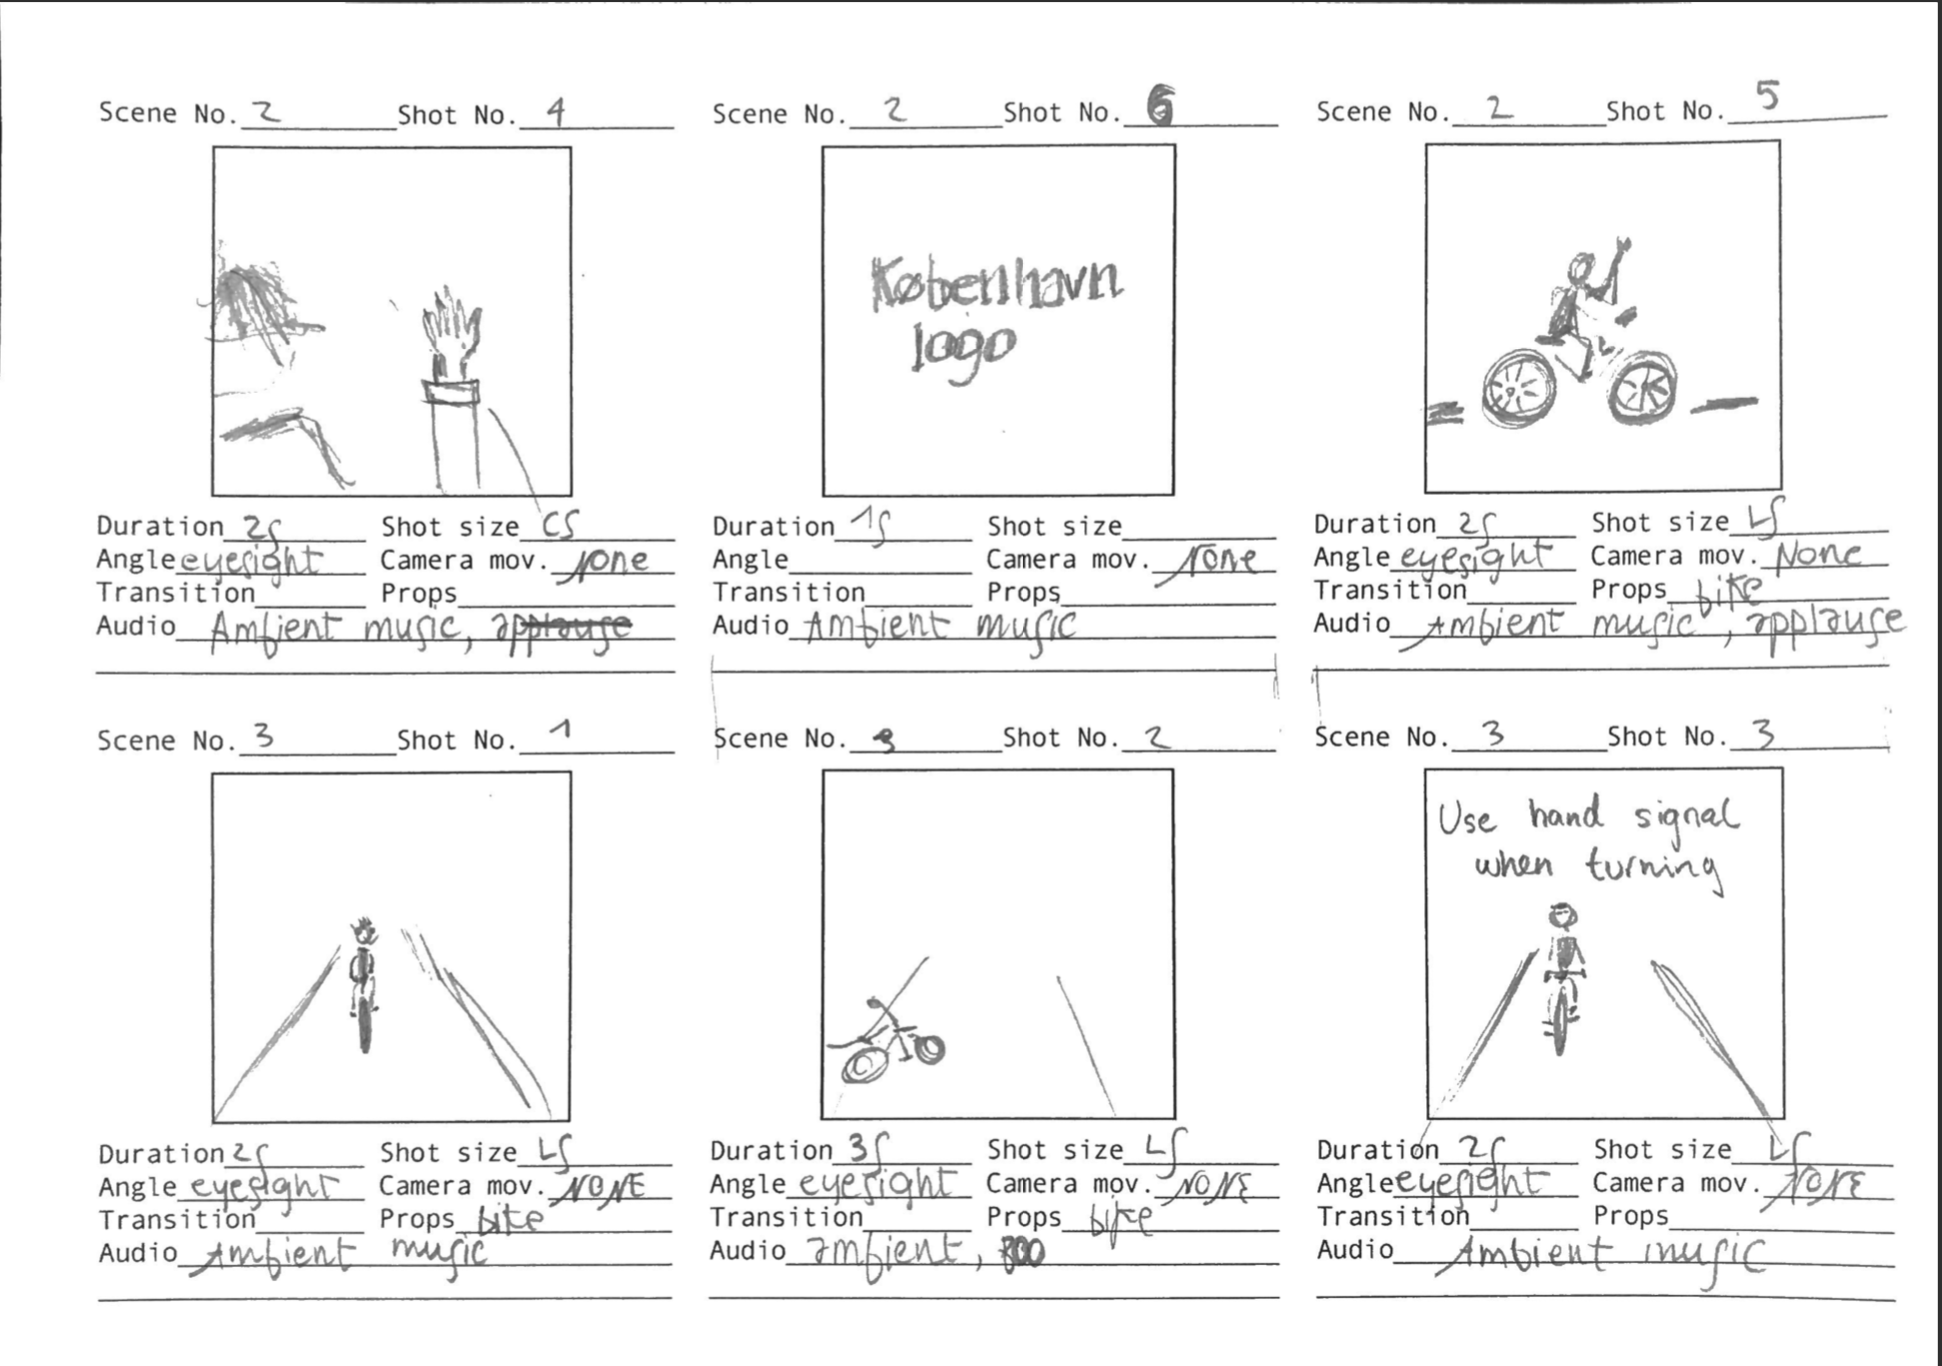 Scene No. 2 Shot No. 4
Duration 2s Shot size CS
Angle eyesight Camera mov. none
Transition Props
Audio Ambient music, applause
Scene No. 2 Shot No. 6
København
logo
Duration 1s Shot size
Angle Camera mov. None
Transition Props
Audio Ambient music
Scene No. 2 Shot No. 5
Duration 2s Shot size LS
Angle eyesight Camera mov. None
Transition Props bike
Audio Ambient music, applause
Scene No. 3 Shot No. 1
Duration 2s Shot size LS
Angle eyesight Camera mov. NONE
Transition Props bike
Audio Ambient music
Scene No. 3 Shot No. 2
Duration 3s Shot size LS
Angle eyesight Camera mov. NONE
Transition Props bike
Audio ambient, boo
Scene No. 3 Shot No. 3
Use hand signal
when turning
Duration 2s Shot size LS
Angle eyesight Camera mov. NONE
Transition Props
Audio Ambient music